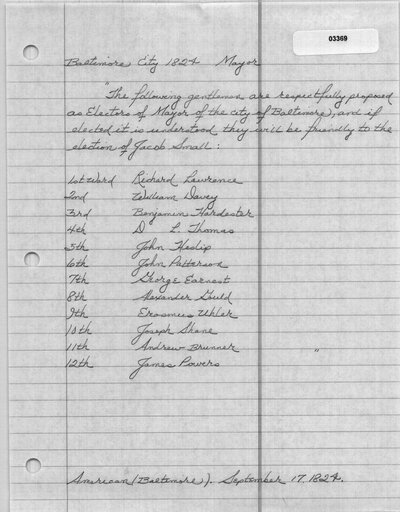 03369
Baltimore City 1824 Mayor
"The following gentlemen are respectfully proposed
as Electors of Mayor of the city of Baltimore, and if
elected it is understood they will be friendly to the
election of Jacob Small:
1st Ward Richard Lawrence
2nd William Davey
3rd Benjamin Hardester
4th D L. Thomas
5th John Heslip
6th John Patterson
7th George Earnest
8th Alexander Gould
9th Erasmus Uhler
10th Joseph Shane
11th Andrew Brunner
12th James Powers "
American (Baltimore). September 17, 1824.